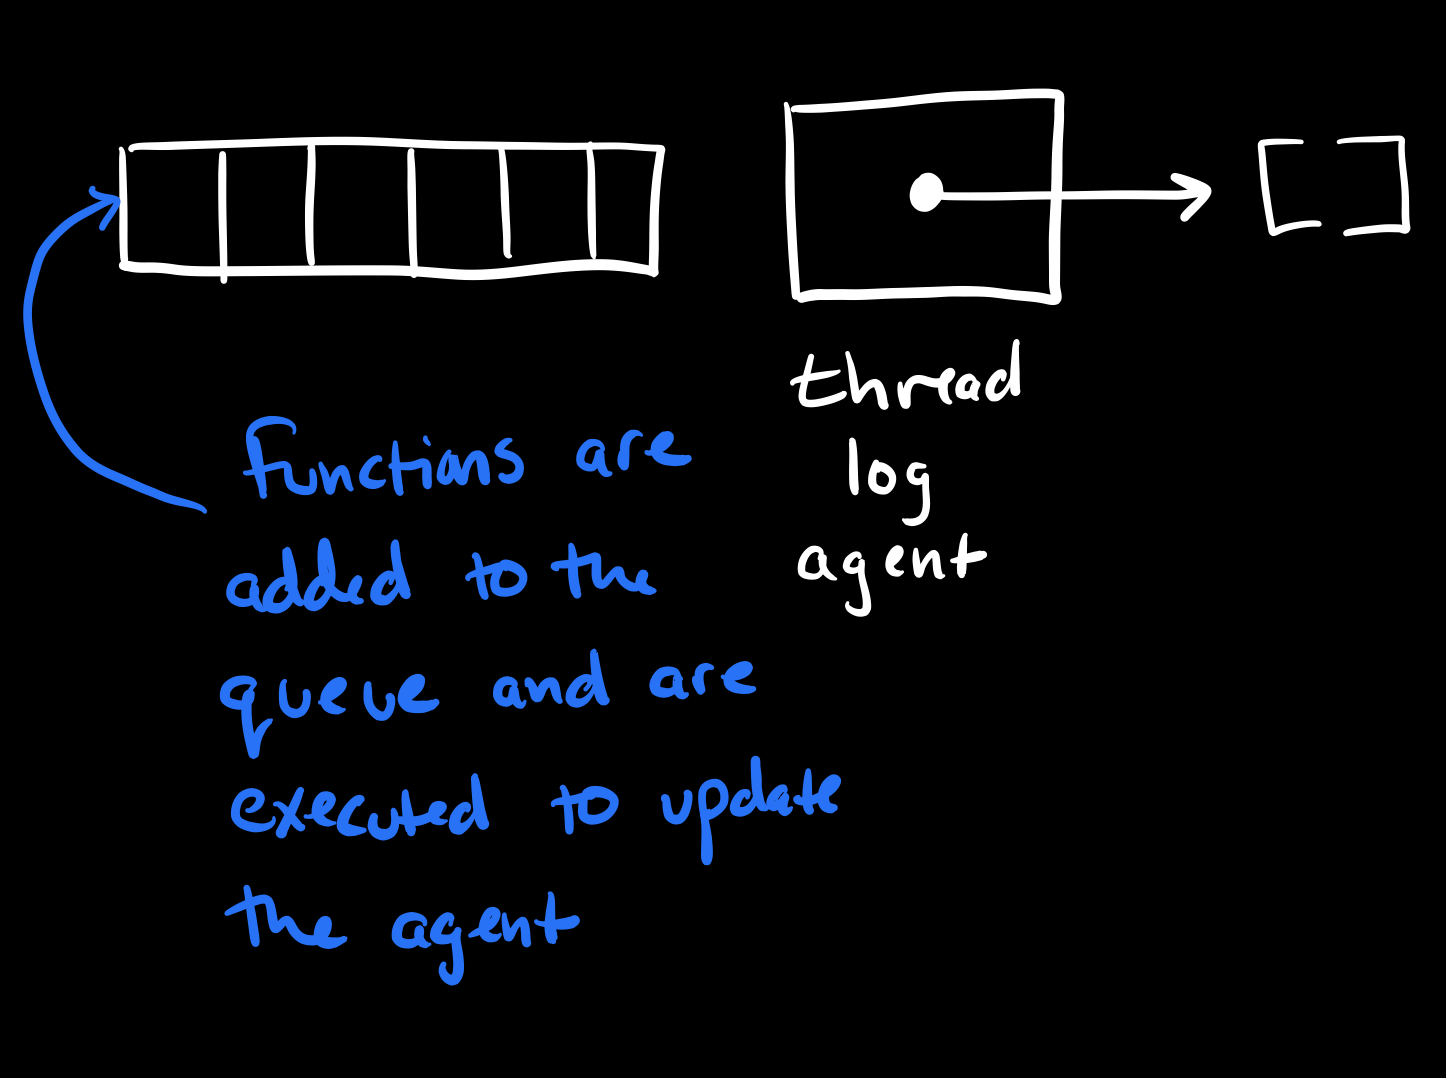 thread
log
agent
functions are
added to the
queue and are
executed to update
the agent